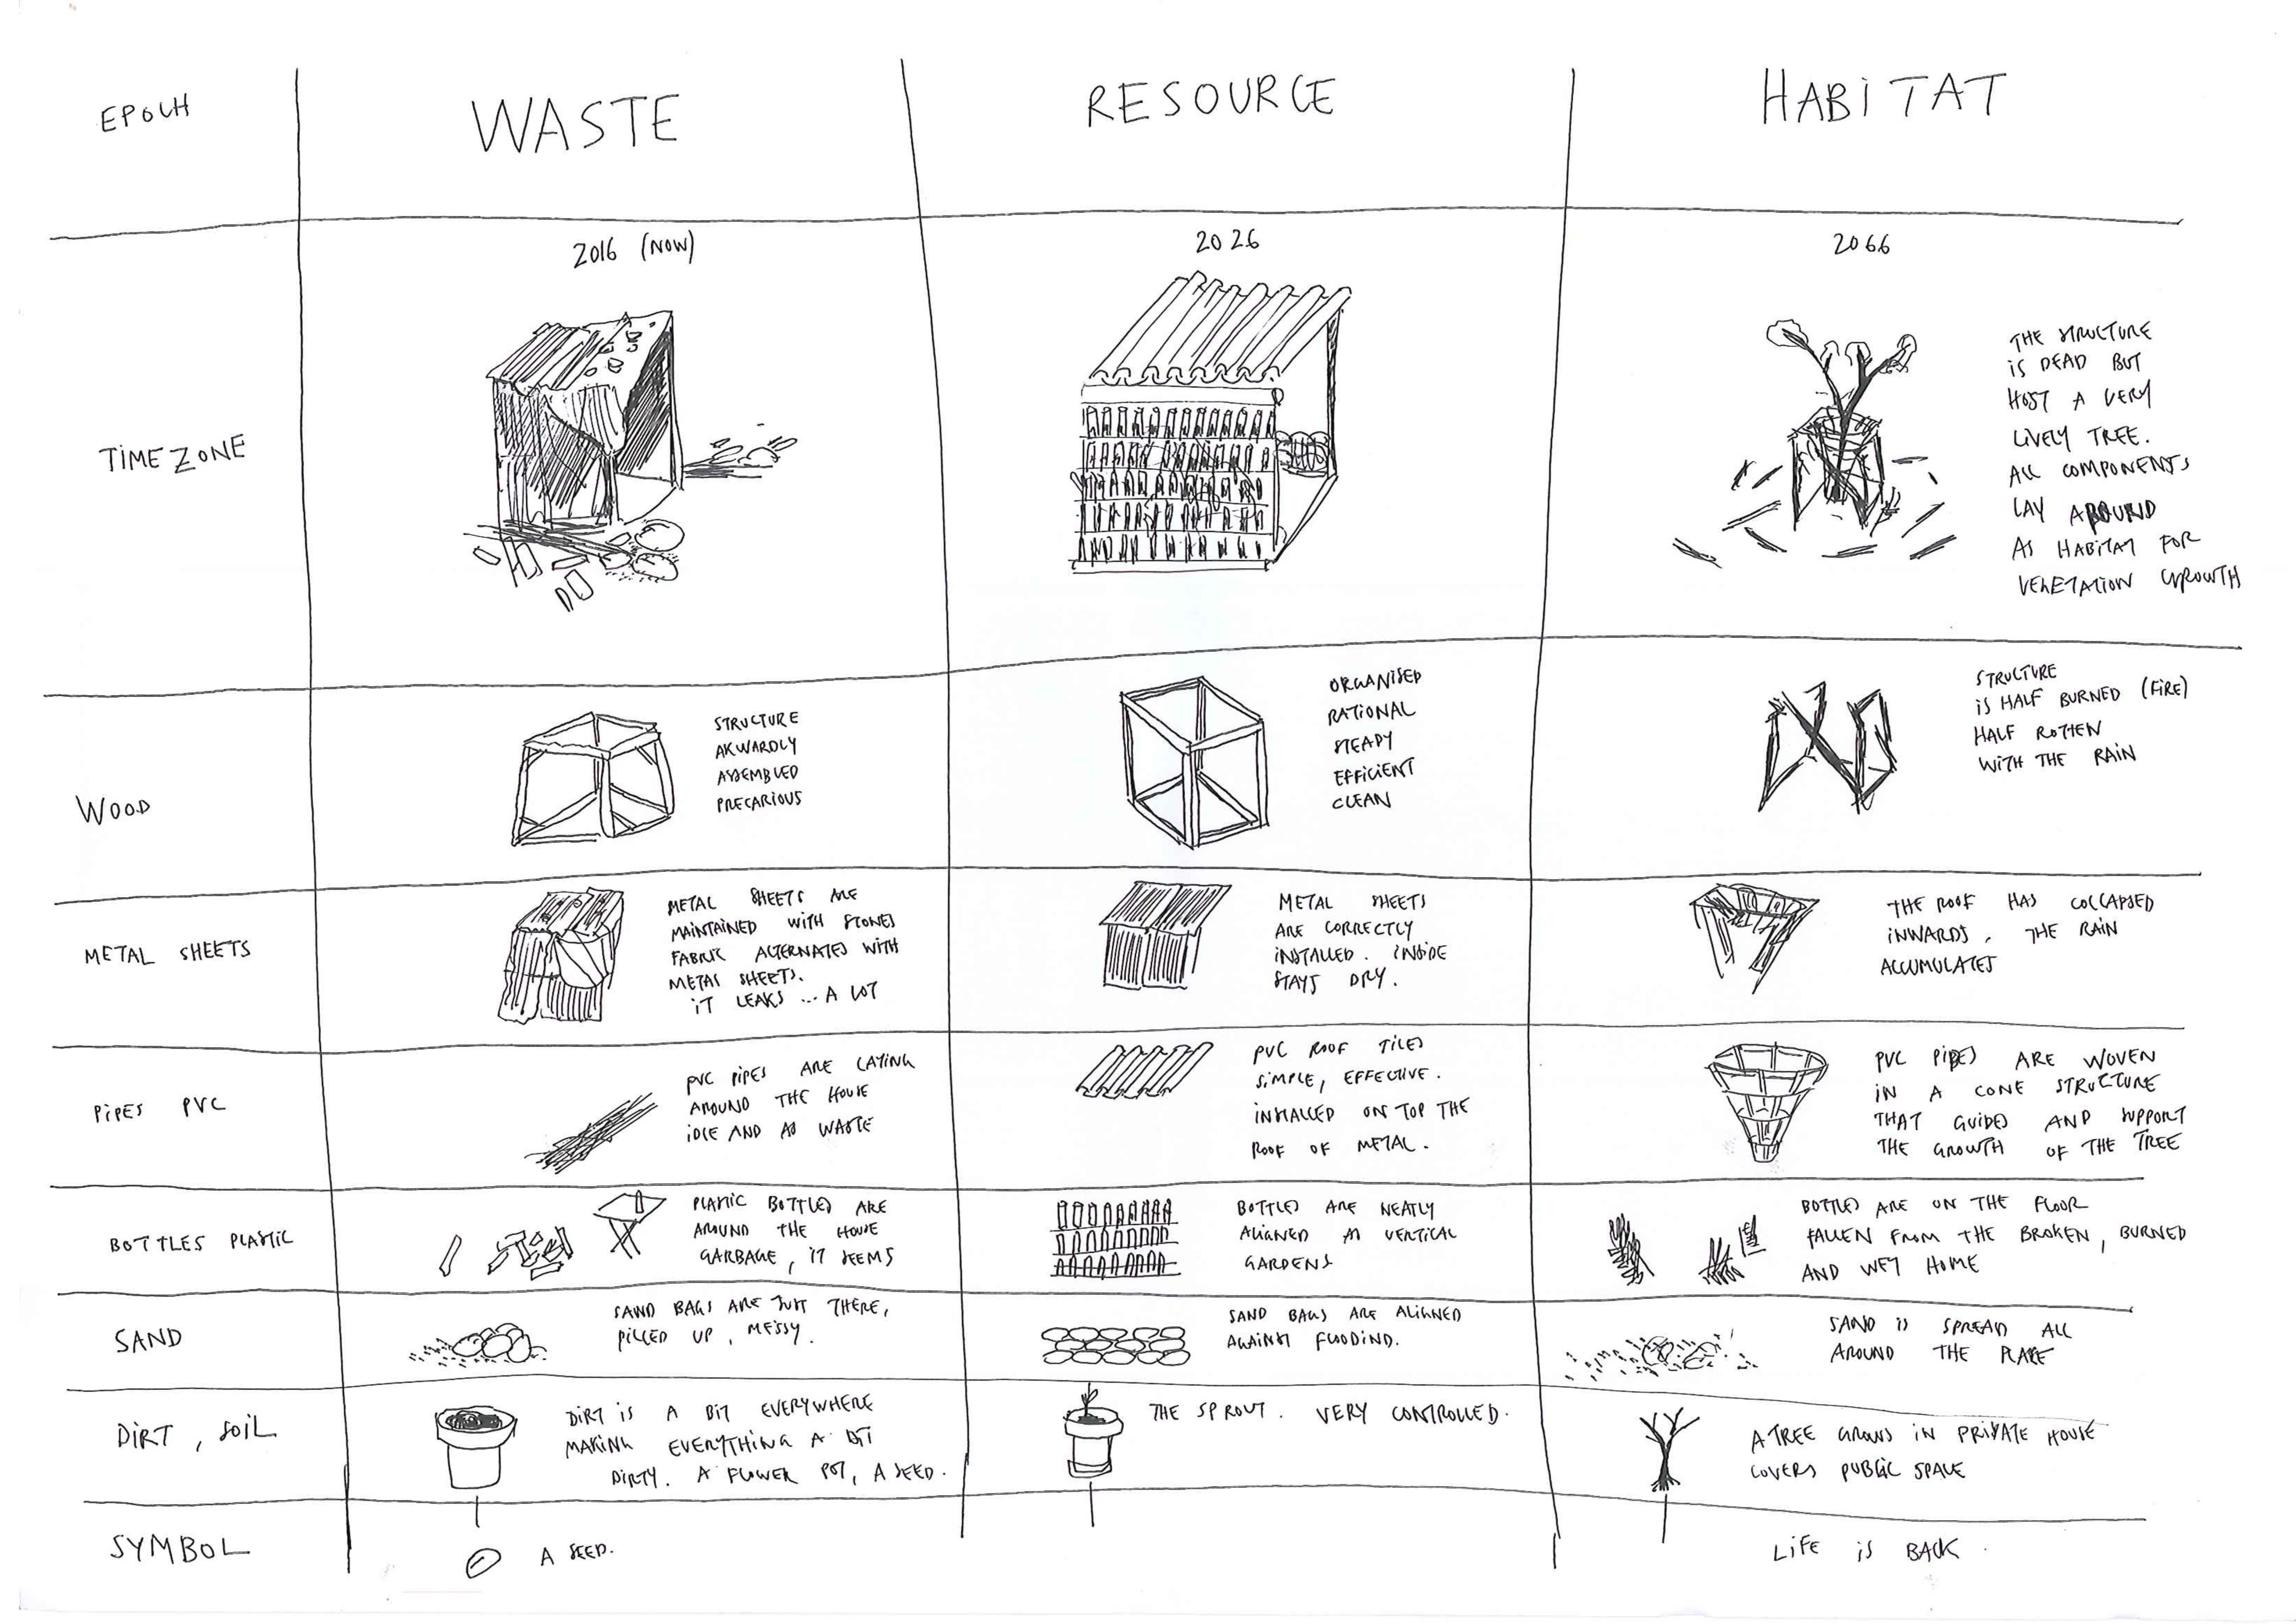 EPOCH
WASTE
RESOURCE
HABITAT
TIMEZONE
2016 (NOW)
2026
2066
THE STRUCTURE
IS DEAD BUT
HOST A VERY
LIVELY TREE.
ALL COMPONENTS
LAY AROUND
AS HABITAT FOR
VEGETATION GROWTH
WOOD
STRUCTURE
AKWARDLY
ASSEMBLED
PRECARIOUS
ORGANISED
RATIONAL
STEADY
EFFICIENT
CLEAN
STRUCTURE
IS HALF BURNED (FIRE)
HALF ROTTEN
WITH THE RAIN
METAL SHEETS
METAL SHEETS ARE
MAINTAINED WITH STONES
FABRIC ALTERNATES WITH
METAL SHEETS.
IT LEAKS ... A LOT
METAL SHEETS
ARE CORRECTLY
INSTALLED. INSIDE
STAYS DRY.
THE ROOF HAS COLLAPSED
INWARDS, THE RAIN
ACCUMULATES
PIPES PVC
PVC PIPES ARE LAYING
AROUND THE HOUSE
IDLE AND AS WASTE
PVC ROOF TILES
SIMPLE, EFFECTIVE.
INSTALLED ON TOP THE
ROOF OF METAL.
PVC PIPES ARE WOVEN
IN A CONE STRUCTURE
THAT GUIDES AND SUPPORT
THE GROWTH OF THE TREE
BOTTLES PLASTIC
PLASTIC BOTTLES ARE
AROUND THE HOUSE
GARBAGE, IT SEEMS
BOTTLES ARE NEATLY
ALIGNED AS VERTICAL
GARDENS
BOTTLES ARE ON THE FLOOR
FALLEN FROM THE BROKEN, BURNED
AND WET HOME
SAND
SAND BAGS ARE JUST THERE,
PILLED UP, MESSY.
SAND BAGS ARE ALIGNED
AGAINST FLOODIND.
SAND IS SPREAD ALL
AROUND THE PLACE
DIRT, SOIL
DIRT IS A BIT EVERYWHERE
MAKING EVERYTHING A BIT
DIRTY. A FLOWER POT, A SEED.
THE SPROUT. VERY CONTROLLED.
A TREE GROWS IN PRIVATE HOUSE
COVERS PUBLIC SPACE
SYMBOL
A SEED.
LIFE IS BACK.